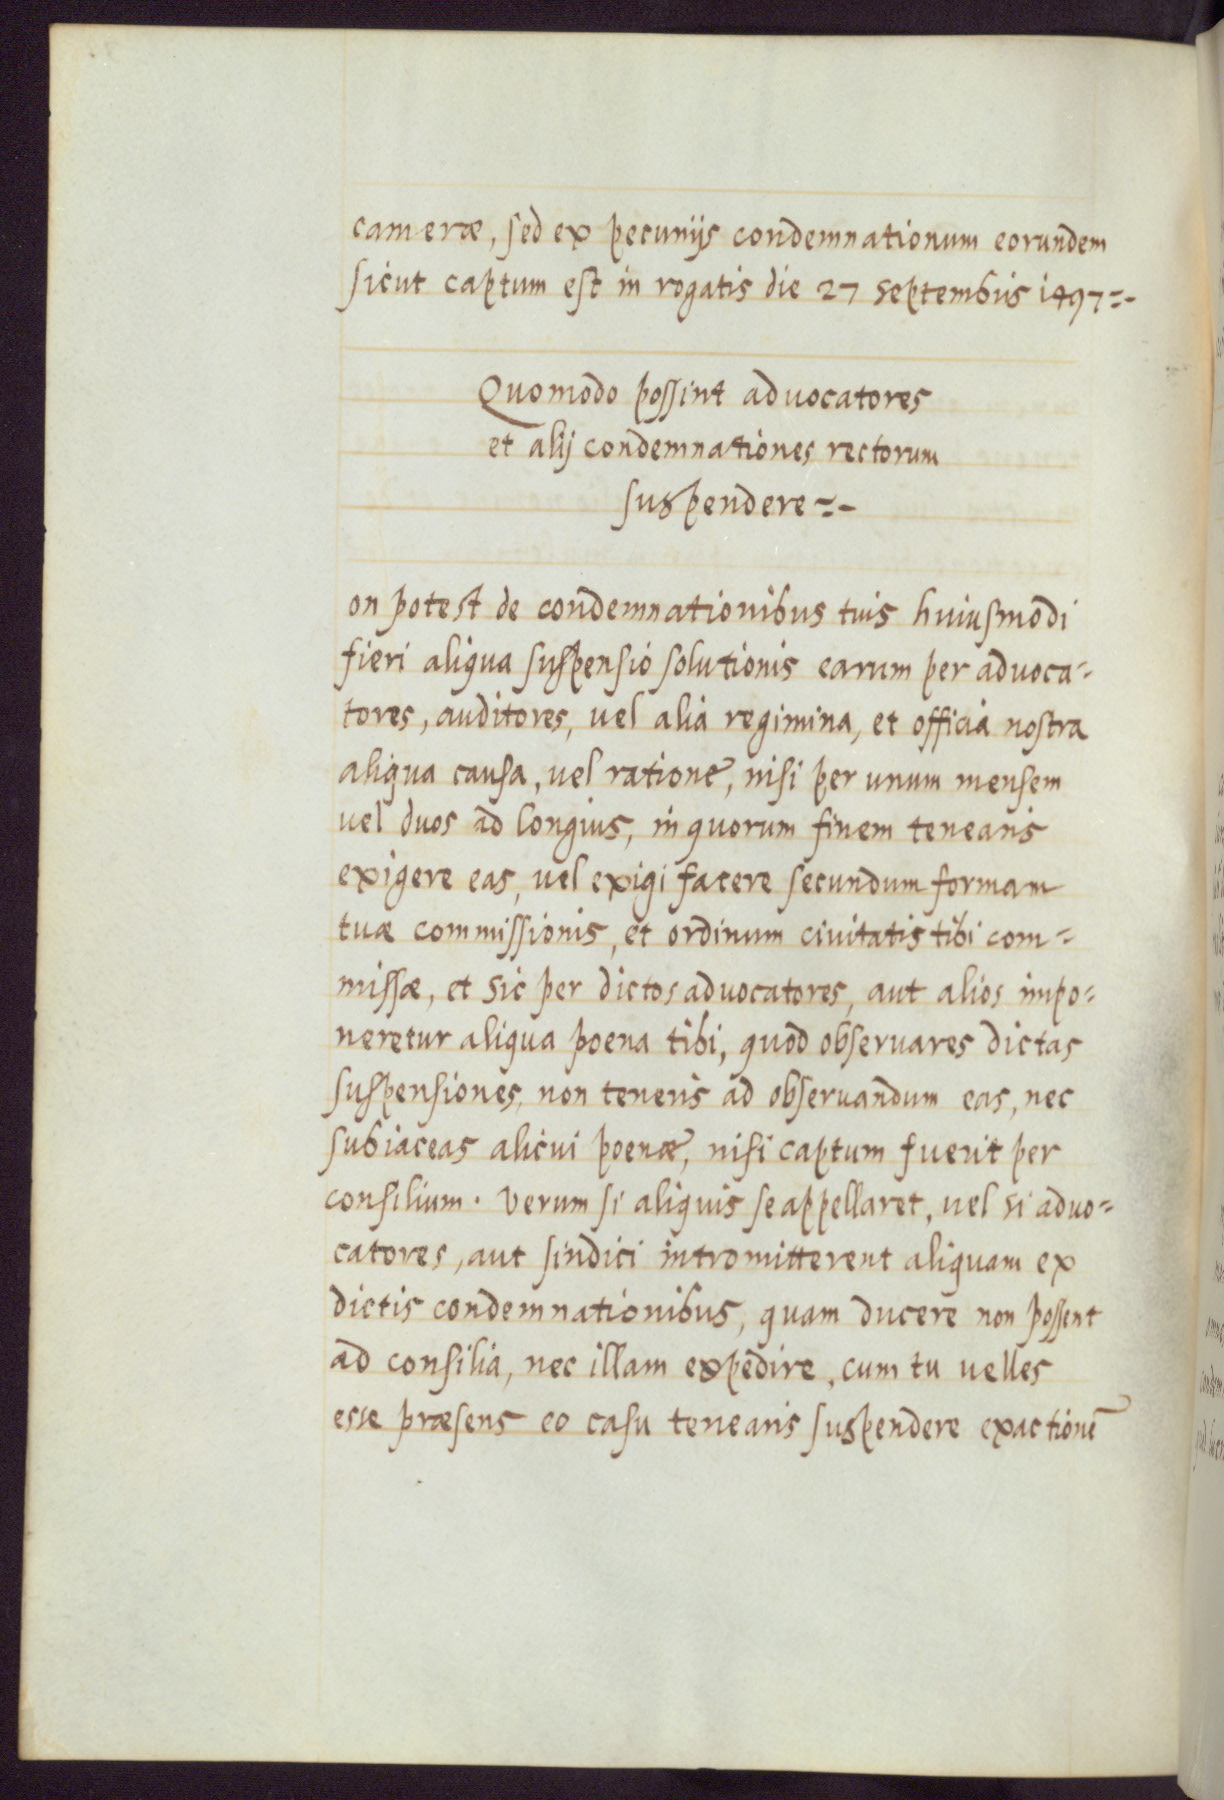 cameræ, sed ex pecunijs condemnationum eorundem
sicut captum est in rogatis die 27 septembris 1497=-
Quomodo possint advocatores
et alij condemnationes rectorum
suspendere=-
on potest de condemnationibus tuis huiusmodi
fieri aliqua suspensio solutionis earum per advoca-
tores, auditores, vel alia regimina, et officia nostra
aliqua causa, vel ratione, nisi per unum mensem
vel duos ad longius, in quorum finem tenearis
exigere eas, vel exigi facere secundum formam
tuæ commissionis, et ordinum civitatis tibi com=
missæ, et sic per dictos advocatores, aut alios impo=
neretur aliqua poena tibi, quod observares dictas
suspensiones, non teneris ad observandum eas, nec
subiaceas alicui poenæ, nisi captum fuerit per
consilium. Verum si aliquis se appellaret, vel si advo=
catores, aut sindici intromitterent aliquam ex
dictis condemnationibus, quam ducere non possent
ad consilia, nec illam expedire, cum tu velles
esse præsens eo casu tenearis suspendere exactionē